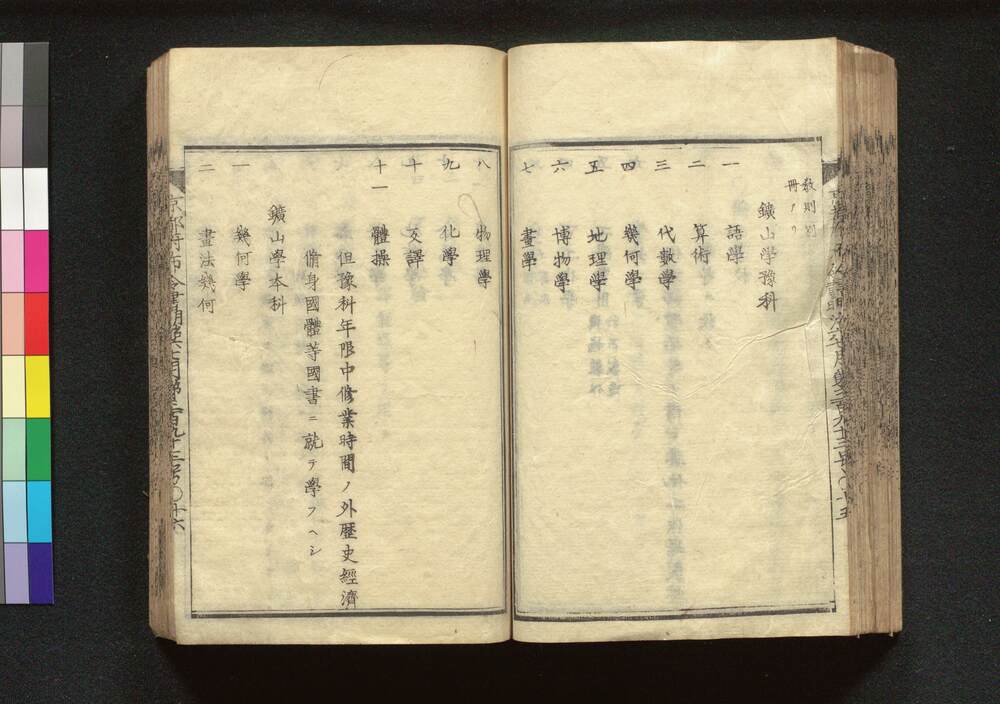 教則別
冊ノ内
鑛山学豫科
一 語學
二 算術
三 代數學
四 幾何學
五 地理學
六 博物學
七 畫學
八 物理學
九 化學
十 文譯
十一 體操
但豫科年限中修業時間ノ外歴史經濟
脩身國體等國書ニ就テ學フヘシ
鑛山學本科
一 幾何學
二 畫法幾何